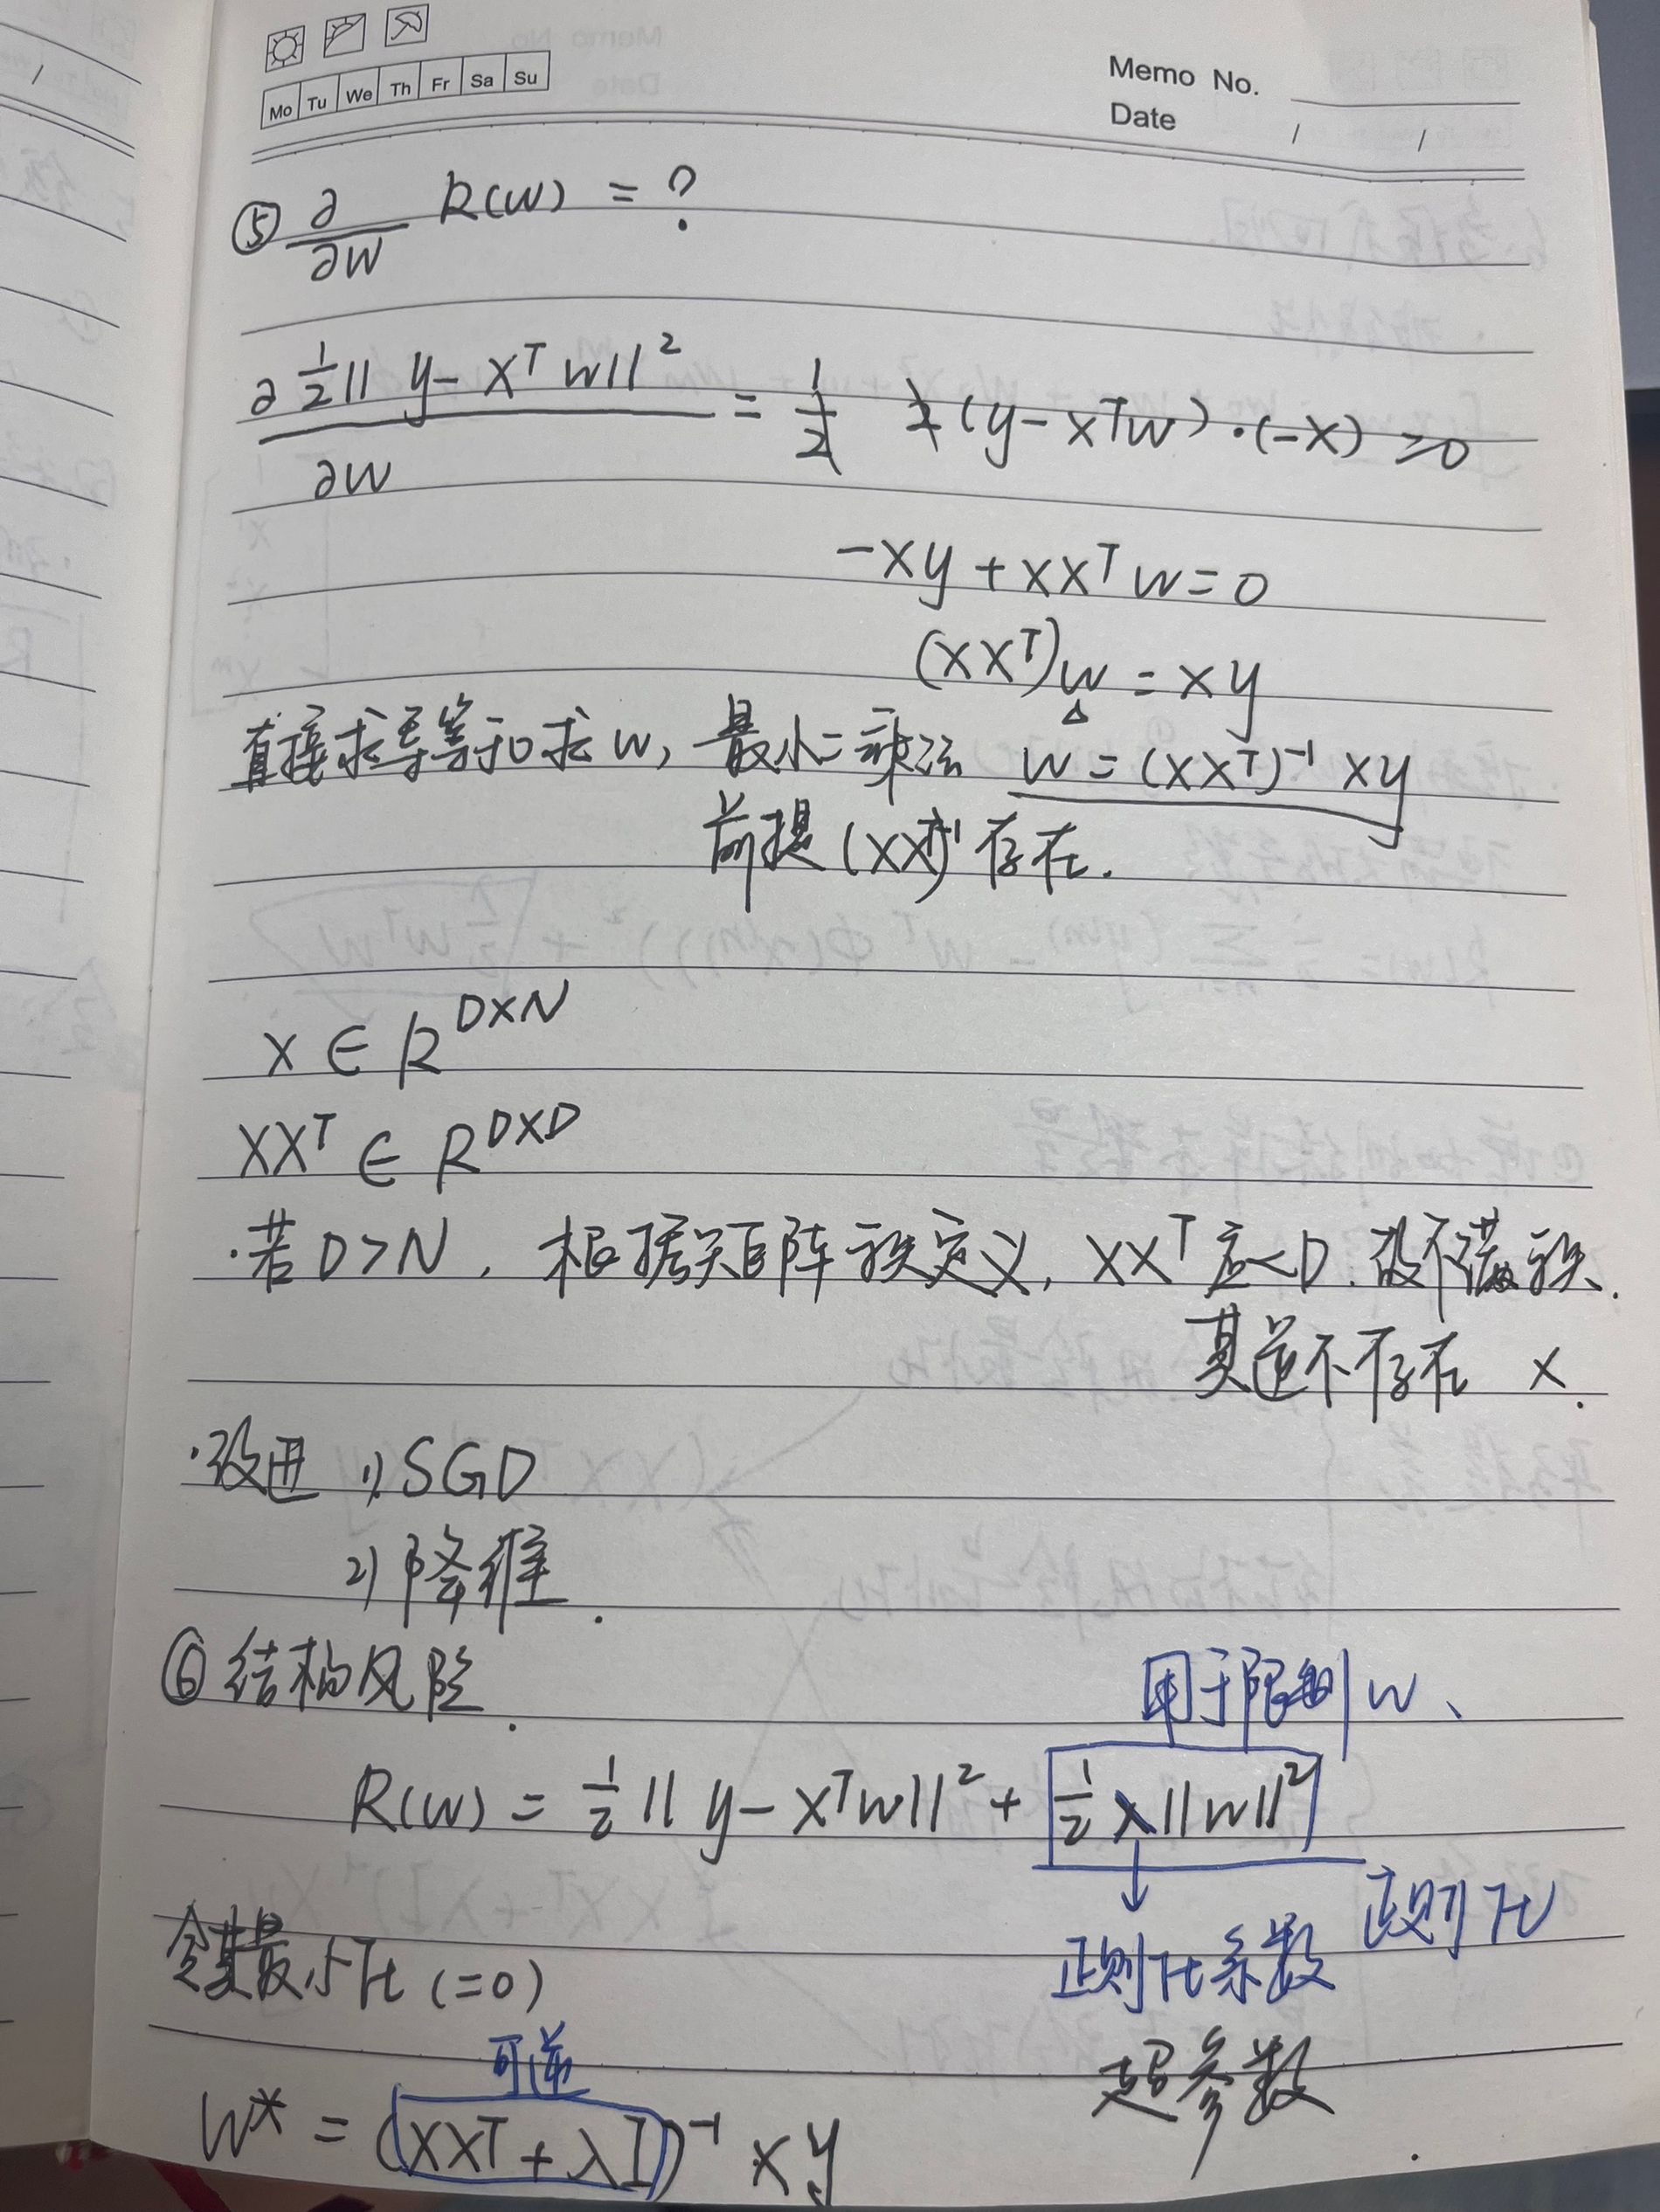 Mo Tu We Th Fr Sa Su
Memo No.
Date / /
⑤ ∂/∂W R(W) = ?
∂ ½|| y - X^T W||² / ∂W = ½ 2 (y - X^T W)·(-X) = 0
-Xy + XX^T W = 0
(XX^T)W = Xy
直接求导等于0求W, 最小二乘法 W = (XX^T)^-1 Xy
前提(XX^T)^-1存在.
X ∈ R^{D×N}
XX^T ∈ R^{D×D}
·若D>N, 根据矩阵秩定义, XX^T应<D. 故不满秩.
其逆不存在 ×.
·改进 1) SGD
2) 降维.
⑥ 结构风险.
用于限制W、
R(W) = ½|| y - X^T W||² + ½λ||W||²
正则化
正则化系数
令其最小化 (=0)
超参数
可逆
W* = (XX^T + λI)^-1 Xy